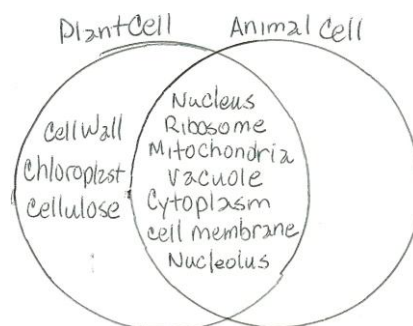 Plant Cell
Animal Cell
Cell Wall
Chloroplast
Cellulose
Nucleus
Ribosome
Mitochondria
Vacuole
Cytoplasm
cell membrane
Nucleolus